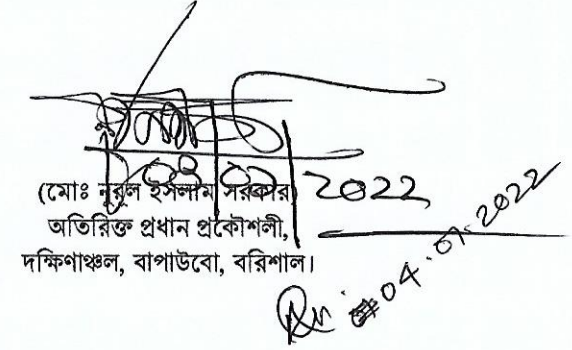 2022
(মোঃ নুরুল ইসলাম সরকার)
অতিরিক্ত প্রধান প্রকৌশলী,
দক্ষিণাঞ্চল, বাপাউবো, বরিশাল।
04.07.2022